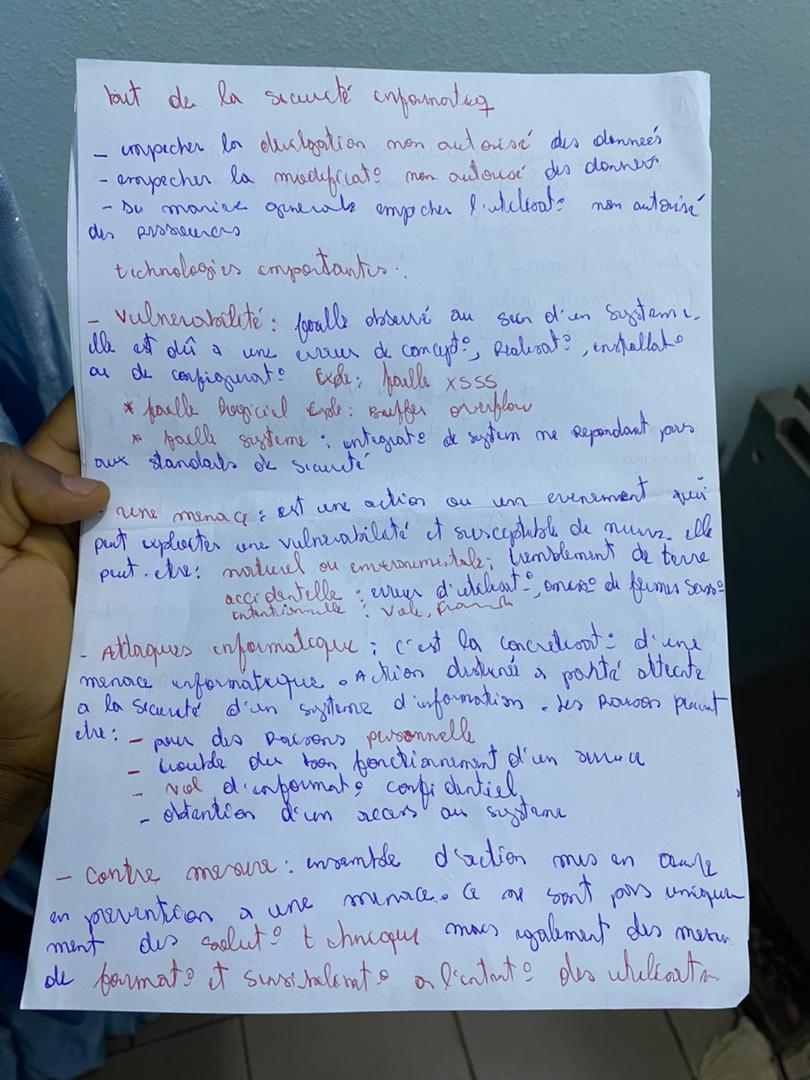 but de la sécurité informatiq
- empecher la divulgation non autorisé des données
- empecher la modificat° non autorisé des données
- Du manière generale empecher l'utilisat° non autorisé
des ressources
technologies importantes.
- Vulnerabilité : faille observé au sein d'un systeme.
elle est dû a une erreur de concept°, Realisat°, installat°
ou de configurat° Exple: faille XSSS
* faille logiciel Exple: Buffer overflow
* faille systeme : integrat° de system ne repondant pas
aux standards de sécurité
- une menace : est une action ou un evenement qui
peut exploiter une vulnerabilité et susceptible de nuire. elle
peut-etre: naturel ou environnementale; tremblement de terre
accidentelle : erreur d'utilisat°, de
intentionnelle : Vole,
- Attaques informatique ; c'est la concretisat° d'une
menace informatique. Action destinée a porté atteinte
a la sécurité d'un systeme d'information. les Raison peuvent
etre: - pour des Raisons personnelle
- trouble du bon fonctionnement d'un service
- vol d'informat° confidentiel
- obtention d'un acces au systeme
- contre mesure : ensemble d'action mis en œuvre
en prevention a une menace. Ce ne sont pas unique
ment des solut° technique mais egalement des mesure
de format° et sensibilisat° a l'intant° des utilisat